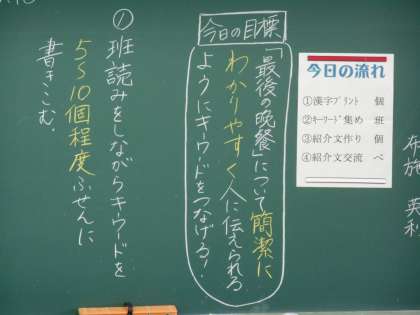 布施 英利
今日の流れ
①漢字プリント 個
②キーワード集め 班
③紹介文作り 個
④紹介文交流 ペ
今日の目標
「最後の晩餐」について簡潔に
わかりやすく人に伝えられる
ようにキーワードをつなげる!
① 班読みをしながらキーワードを
5〜10個程度ふせんに
書きこむ。